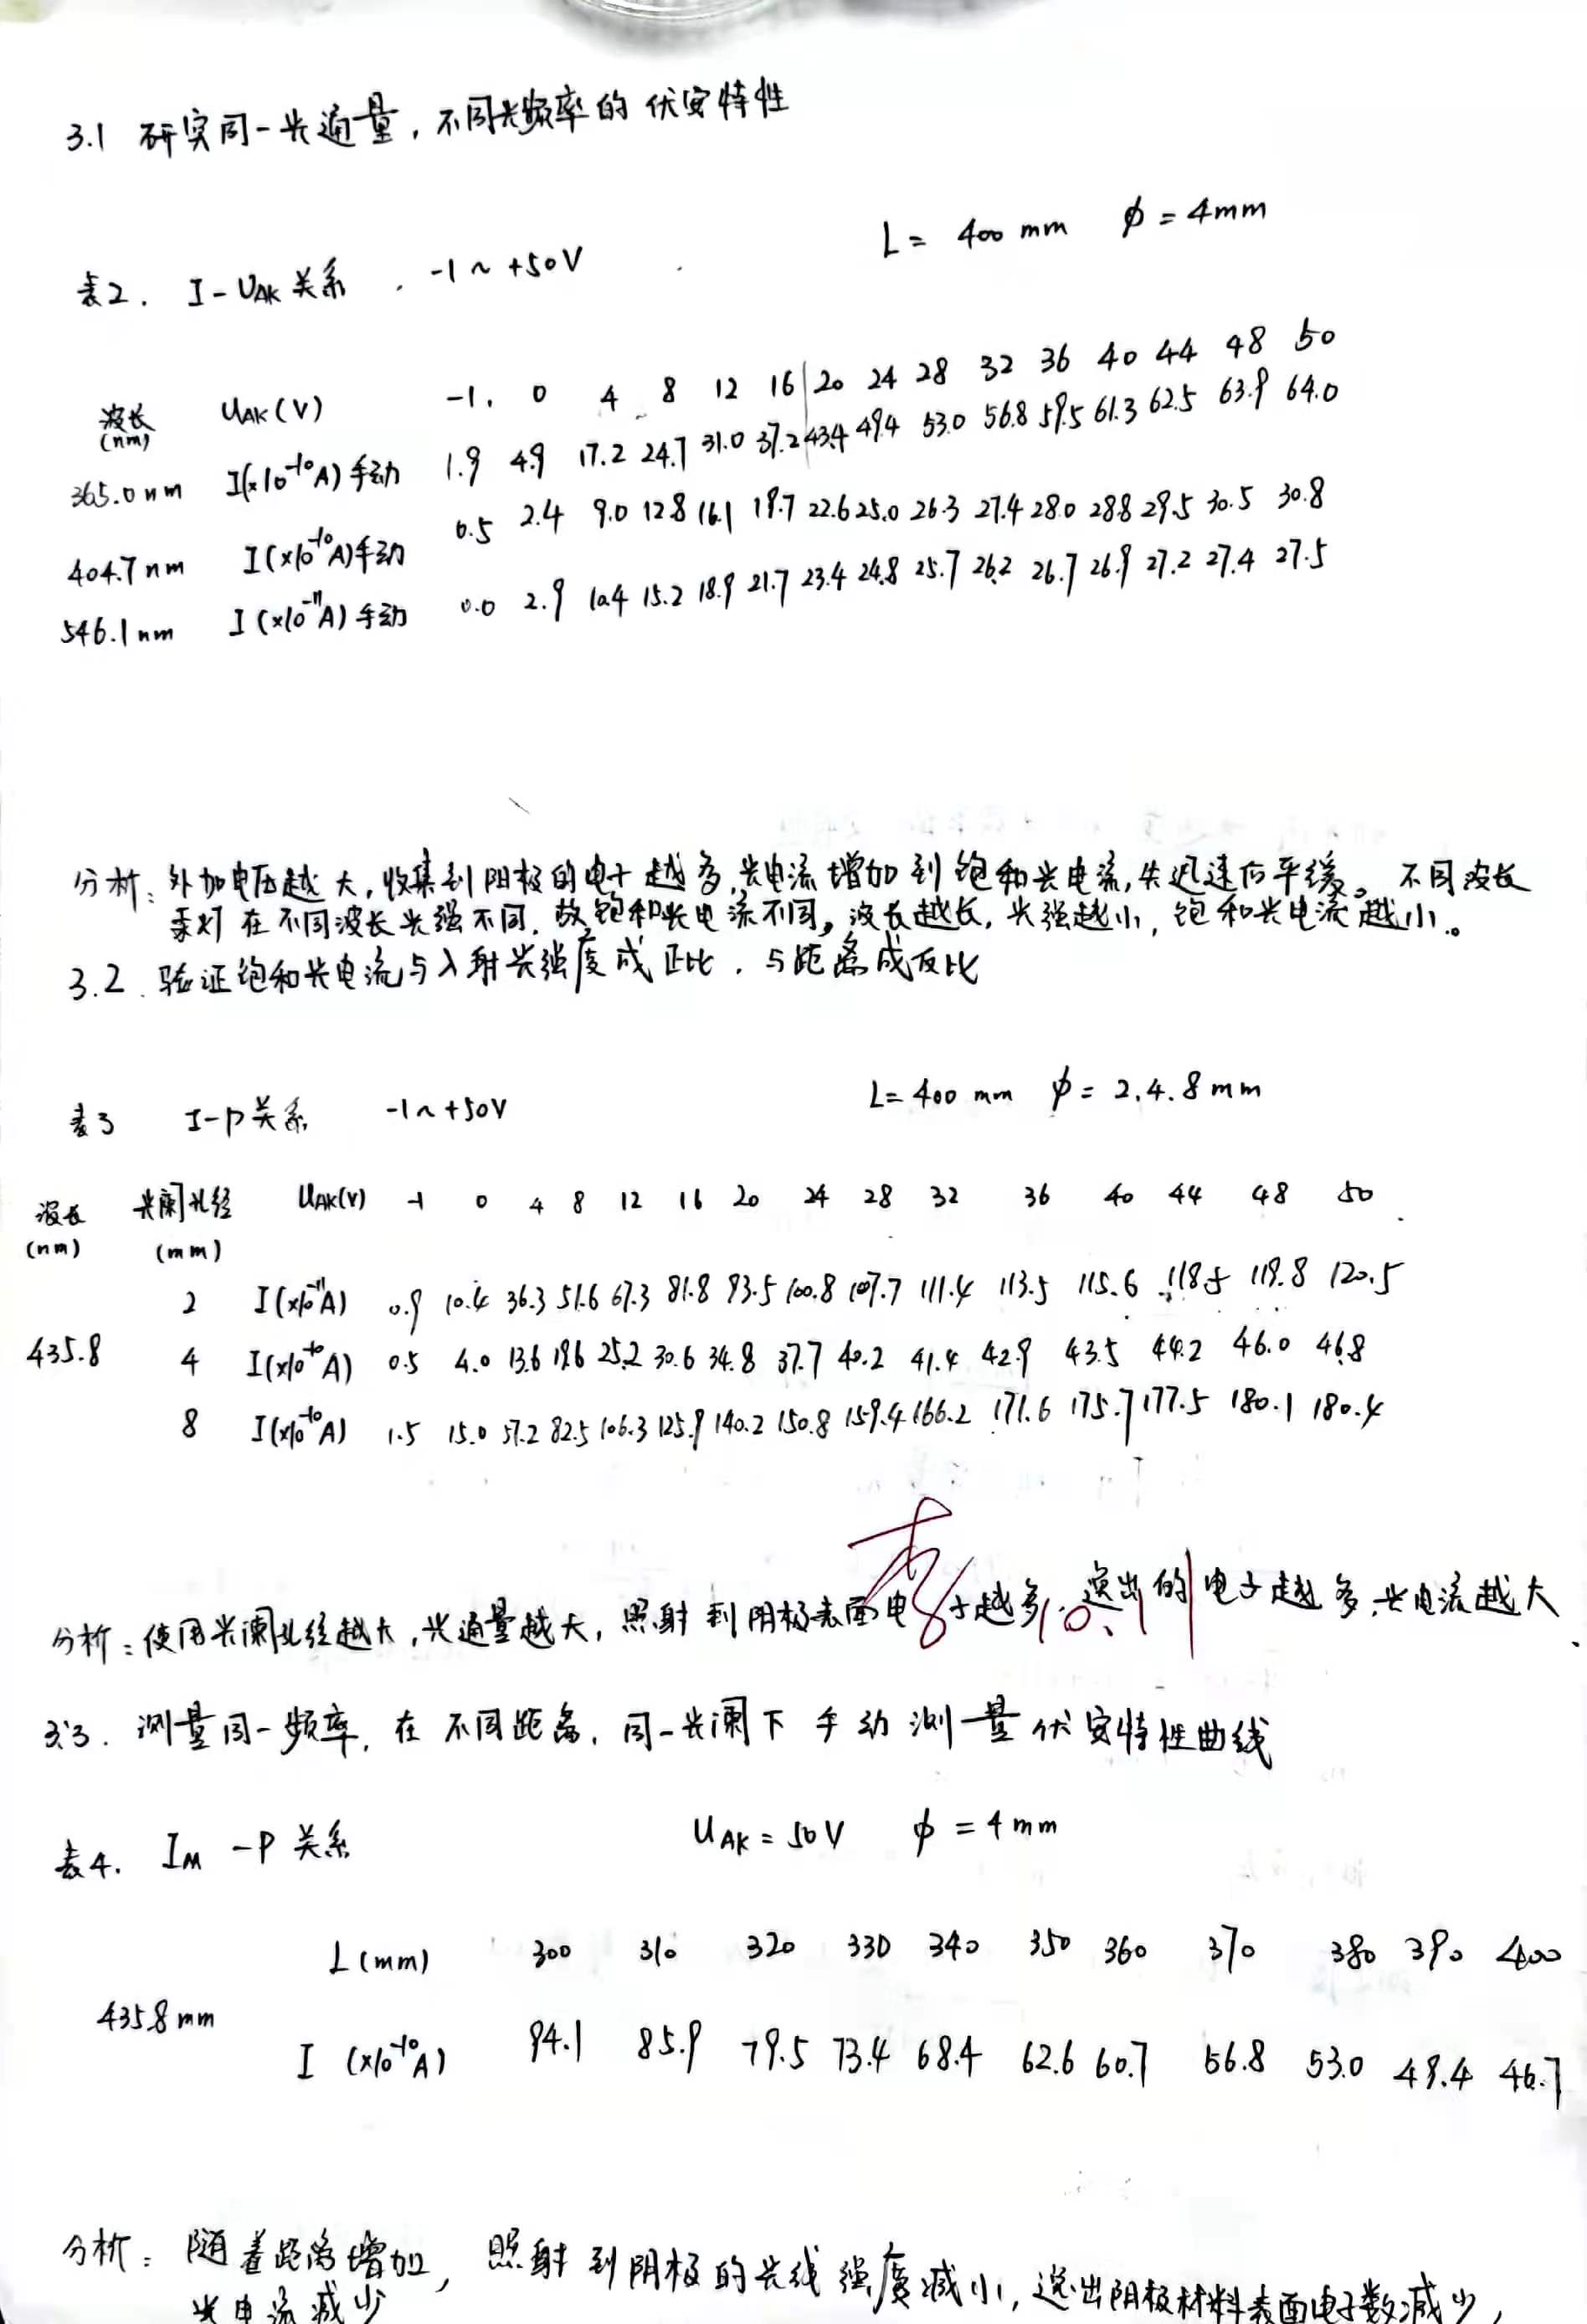 3.1 研究同一光通量，不同光频率的伏安特性
L = 400 mm φ = 4mm
表2. I-UAK关系. -1~+50V
波长(nm) UAK(V) -1. 0 4 8 12 16 20 24 28 32 36 40 44 48 50
365.0nm I(×10⁻¹⁰A)手动 1.9 4.9 17.2 24.7 31.0 37.2 43.4 49.4 53.0 56.8 59.5 61.3 62.5 63.9 64.0
404.7nm I(×10⁻¹⁰A)手动 0.5 2.4 9.0 12.8 16.1 19.7 22.6 25.0 26.3 27.4 28.0 28.8 29.5 30.5 30.8
546.1nm I(×10⁻¹¹A)手动 0.0 2.9 10.4 15.2 18.9 21.7 23.4 24.8 25.7 26.2 26.7 26.9 27.2 27.4 27.5
分析：外加电压越大，收集到阴极的电子越多，光电流增加到饱和光电流，先迅速后平缓。不同波长
汞灯在不同波长光强不同，故饱和光电流不同，波长越长，光强越小，饱和光电流越小。
3.2.验证饱和光电流与入射光强度成正比，与距离成反比
L=400 mm φ=2.4.8mm
表3 I-P关系 -1~+50V
波长(nm) 光阑孔径(mm) UAK(V) -1 0 4 8 12 16 20 24 28 32 36 40 44 48 50
2 I(×10⁻¹¹A) 0.9 10.4 36.3 51.6 67.3 81.8 93.5 100.8 107.7 111.4 113.5 115.6 118.5 119.8 120.5
435.8 4 I(×10⁻¹⁰A) 0.5 4.0 13.6 19.6 25.2 30.6 34.8 37.7 40.2 41.4 42.9 43.5 44.2 46.0 46.8
8 I(×10⁻¹⁰A) 1.5 15.0 57.2 82.5 106.3 125.9 140.2 150.8 159.4 166.2 171.6 175.7 177.5 180.1 180.4
分析：使用光阑孔径越大，光通量越大，照射到阴极表面电子越多，逸出的电子越多，光电流越大
10.11
3.3. 测量同一频率，在不同距离，同一光阑下手动测量伏安特性曲线
表4. IM-P关系 UAK=50V φ=4mm
L(mm) 300 310 320 330 340 350 360 370 380 390 400
435.8mm
I (×10⁻¹⁰A) 94.1 85.9 79.5 73.4 68.4 62.6 60.7 56.8 53.0 49.4 46.7
分析：随着距离增加，照射到阴极的光线强度减小，逸出阴极材料表面电子数减少，
光电流减少